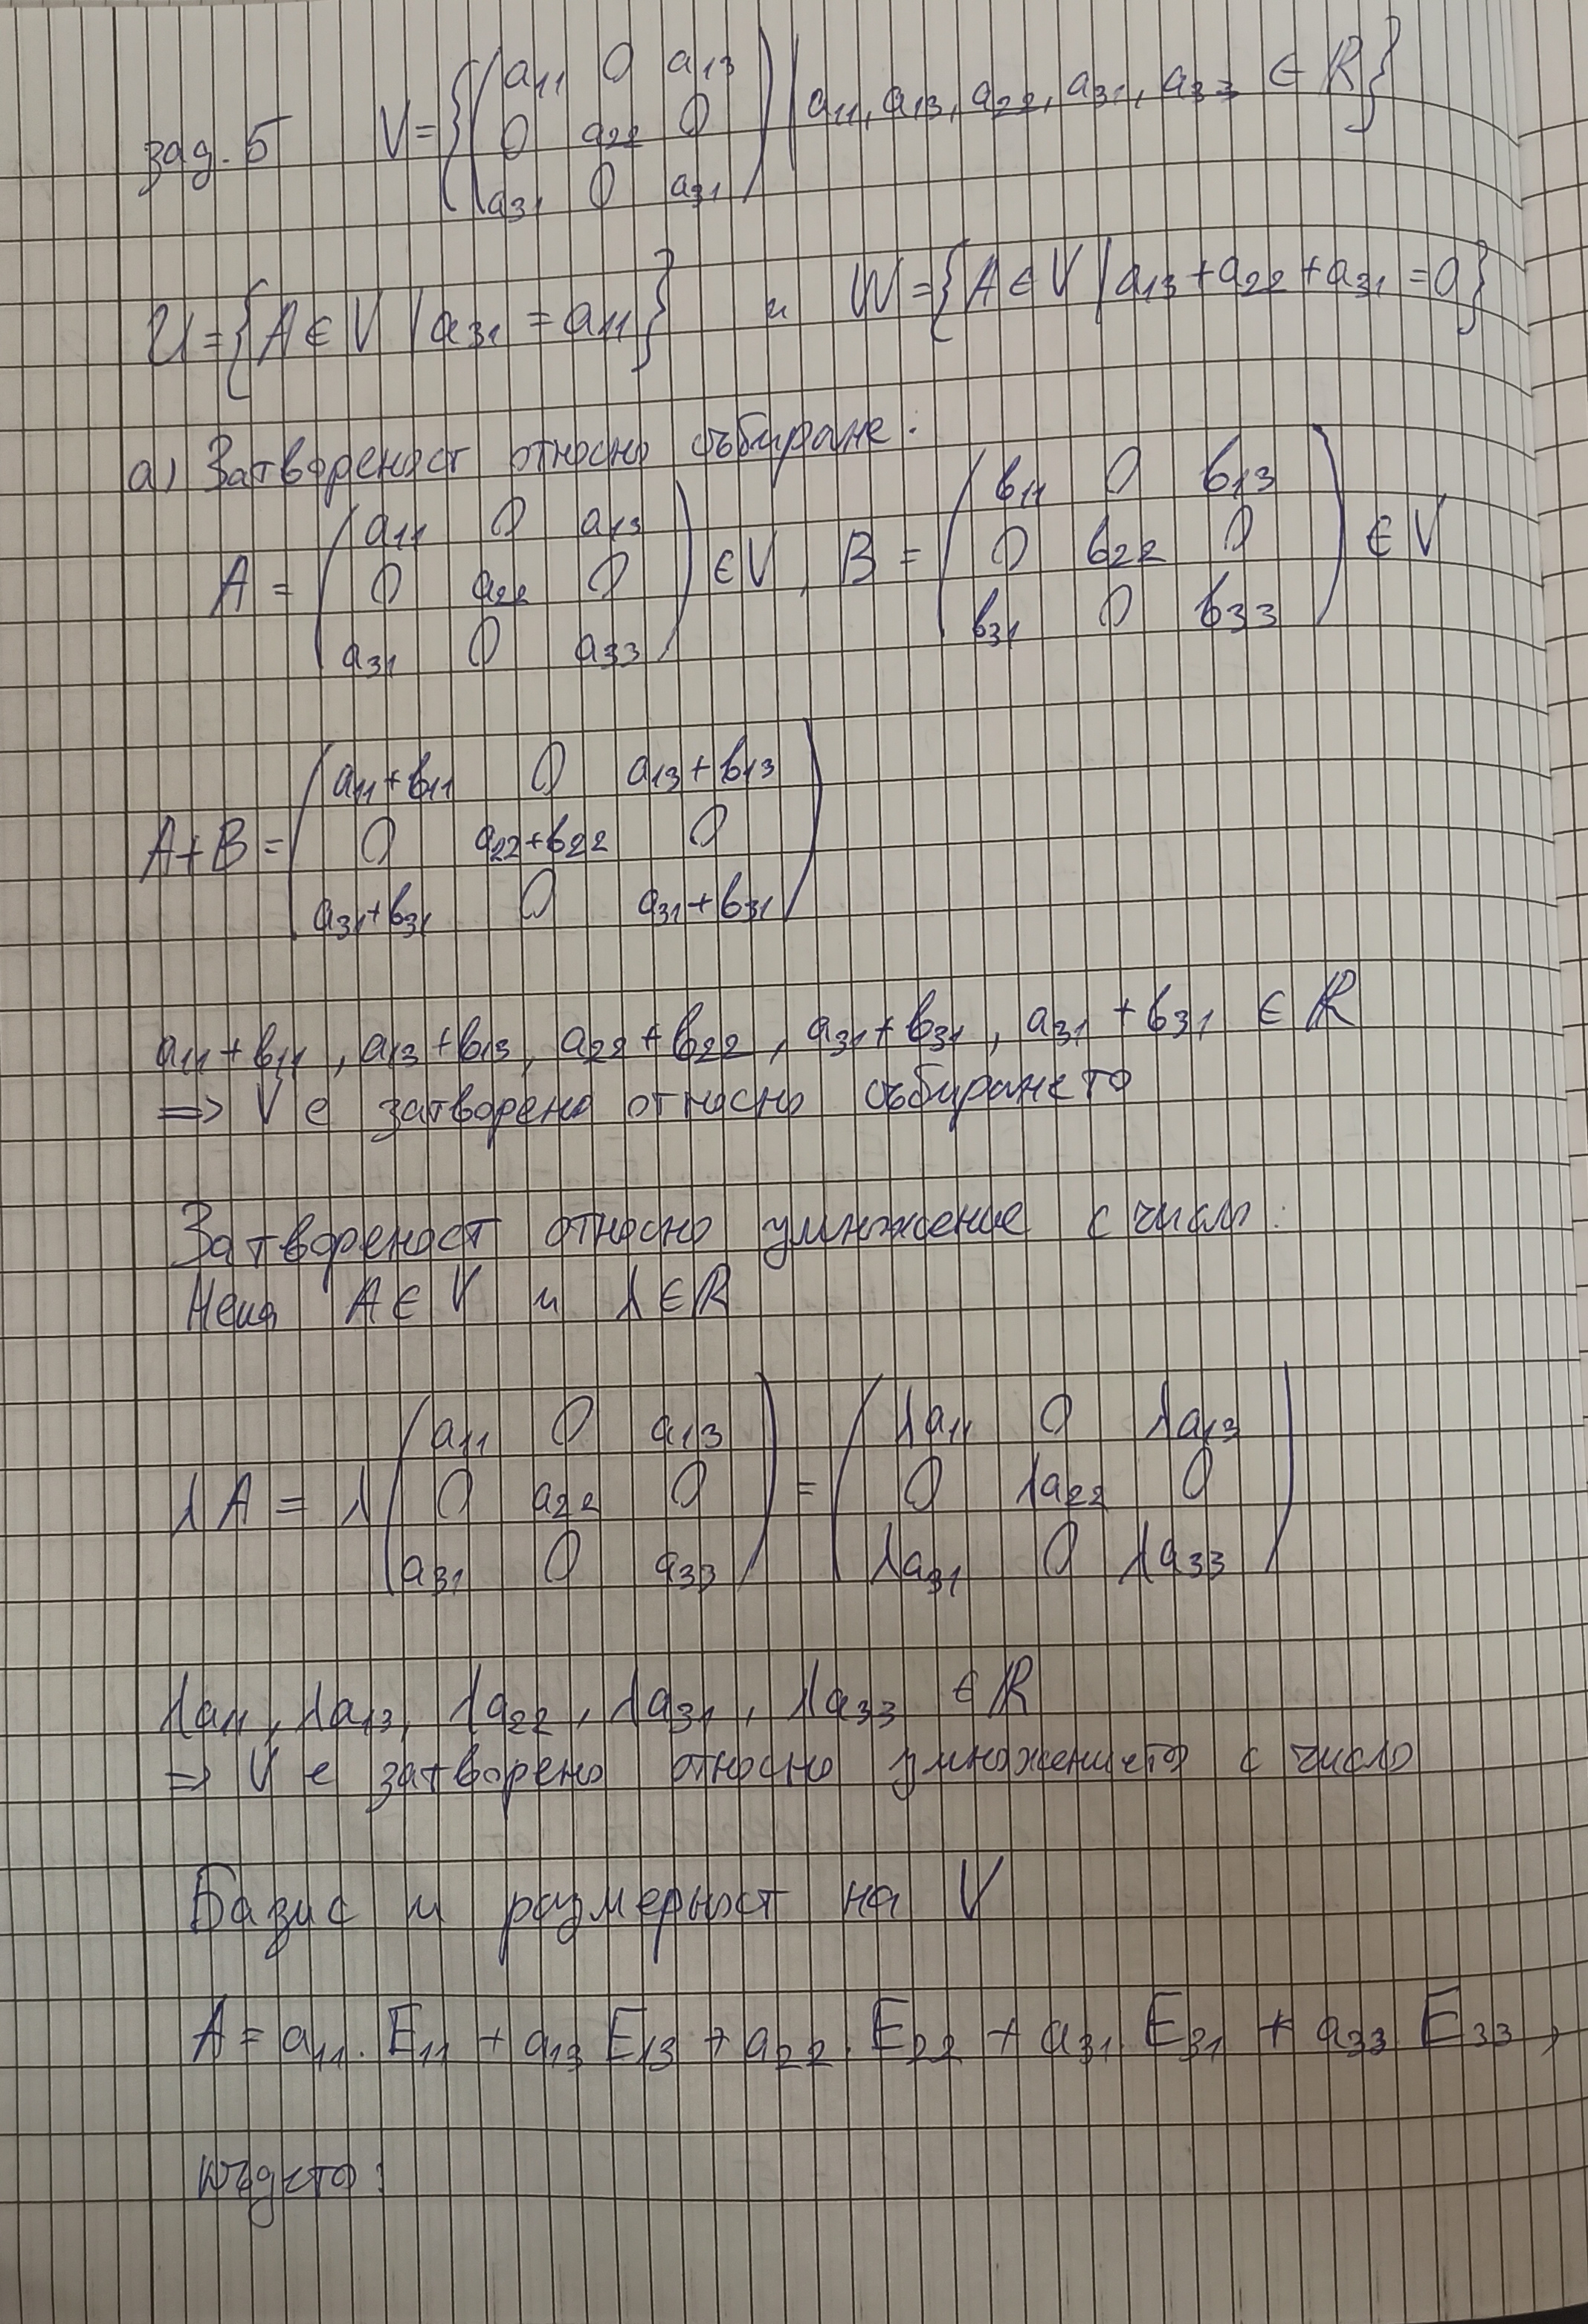 зад. 5 V={(a₁₁ 0 a₁₃
0 a₂₂ 0
a₃₁ 0 a₃₁) | a₁₁, a₁₃, a₂₂, a₃₁, a₃₃ ∈ ℝ}
U={A∈V | a₃₁ = a₁₁} и W={A∈V | a₁₃+a₂₂+a₃₁ = 0}
а) Затвореност относно събиране:
A = (a₁₁ 0 a₁₃
0 a₂₂ 0
a₃₁ 0 a₃₃) ∈V, B = (b₁₁ 0 b₁₃
0 b₂₂ 0
b₃₁ 0 b₃₃) ∈V
A+B = (a₁₁+b₁₁ 0 a₁₃+b₁₃
0 a₂₂+b₂₂ 0
a₃₁+b₃₁ 0 a₃₁+b₃₁)
a₁₁+b₁₁, a₁₃+b₁₃, a₂₂+b₂₂, a₃₁+b₃₁, a₃₁+b₃₁ ∈ ℝ
=> V е затворено относно събирането
Затвореност относно умножение с число:
Нека A∈V и λ∈ℝ
λA = λ(a₁₁ 0 a₁₃
0 a₂₂ 0
a₃₁ 0 a₃₃) = (λa₁₁ 0 λa₁₃
0 λa₂₂ 0
λa₃₁ 0 λa₃₃)
λa₁₁, λa₁₃, λa₂₂, λa₃₁, λa₃₃ ∈ℝ
=> V е затворено относно умножението с число
Базис и размерност на V
A = a₁₁. E₁₁ + a₁₃ E₁₃ + a₂₂. E₂₂ + a₃₁ E₃₁ + a₃₃ E₃₃,
където: